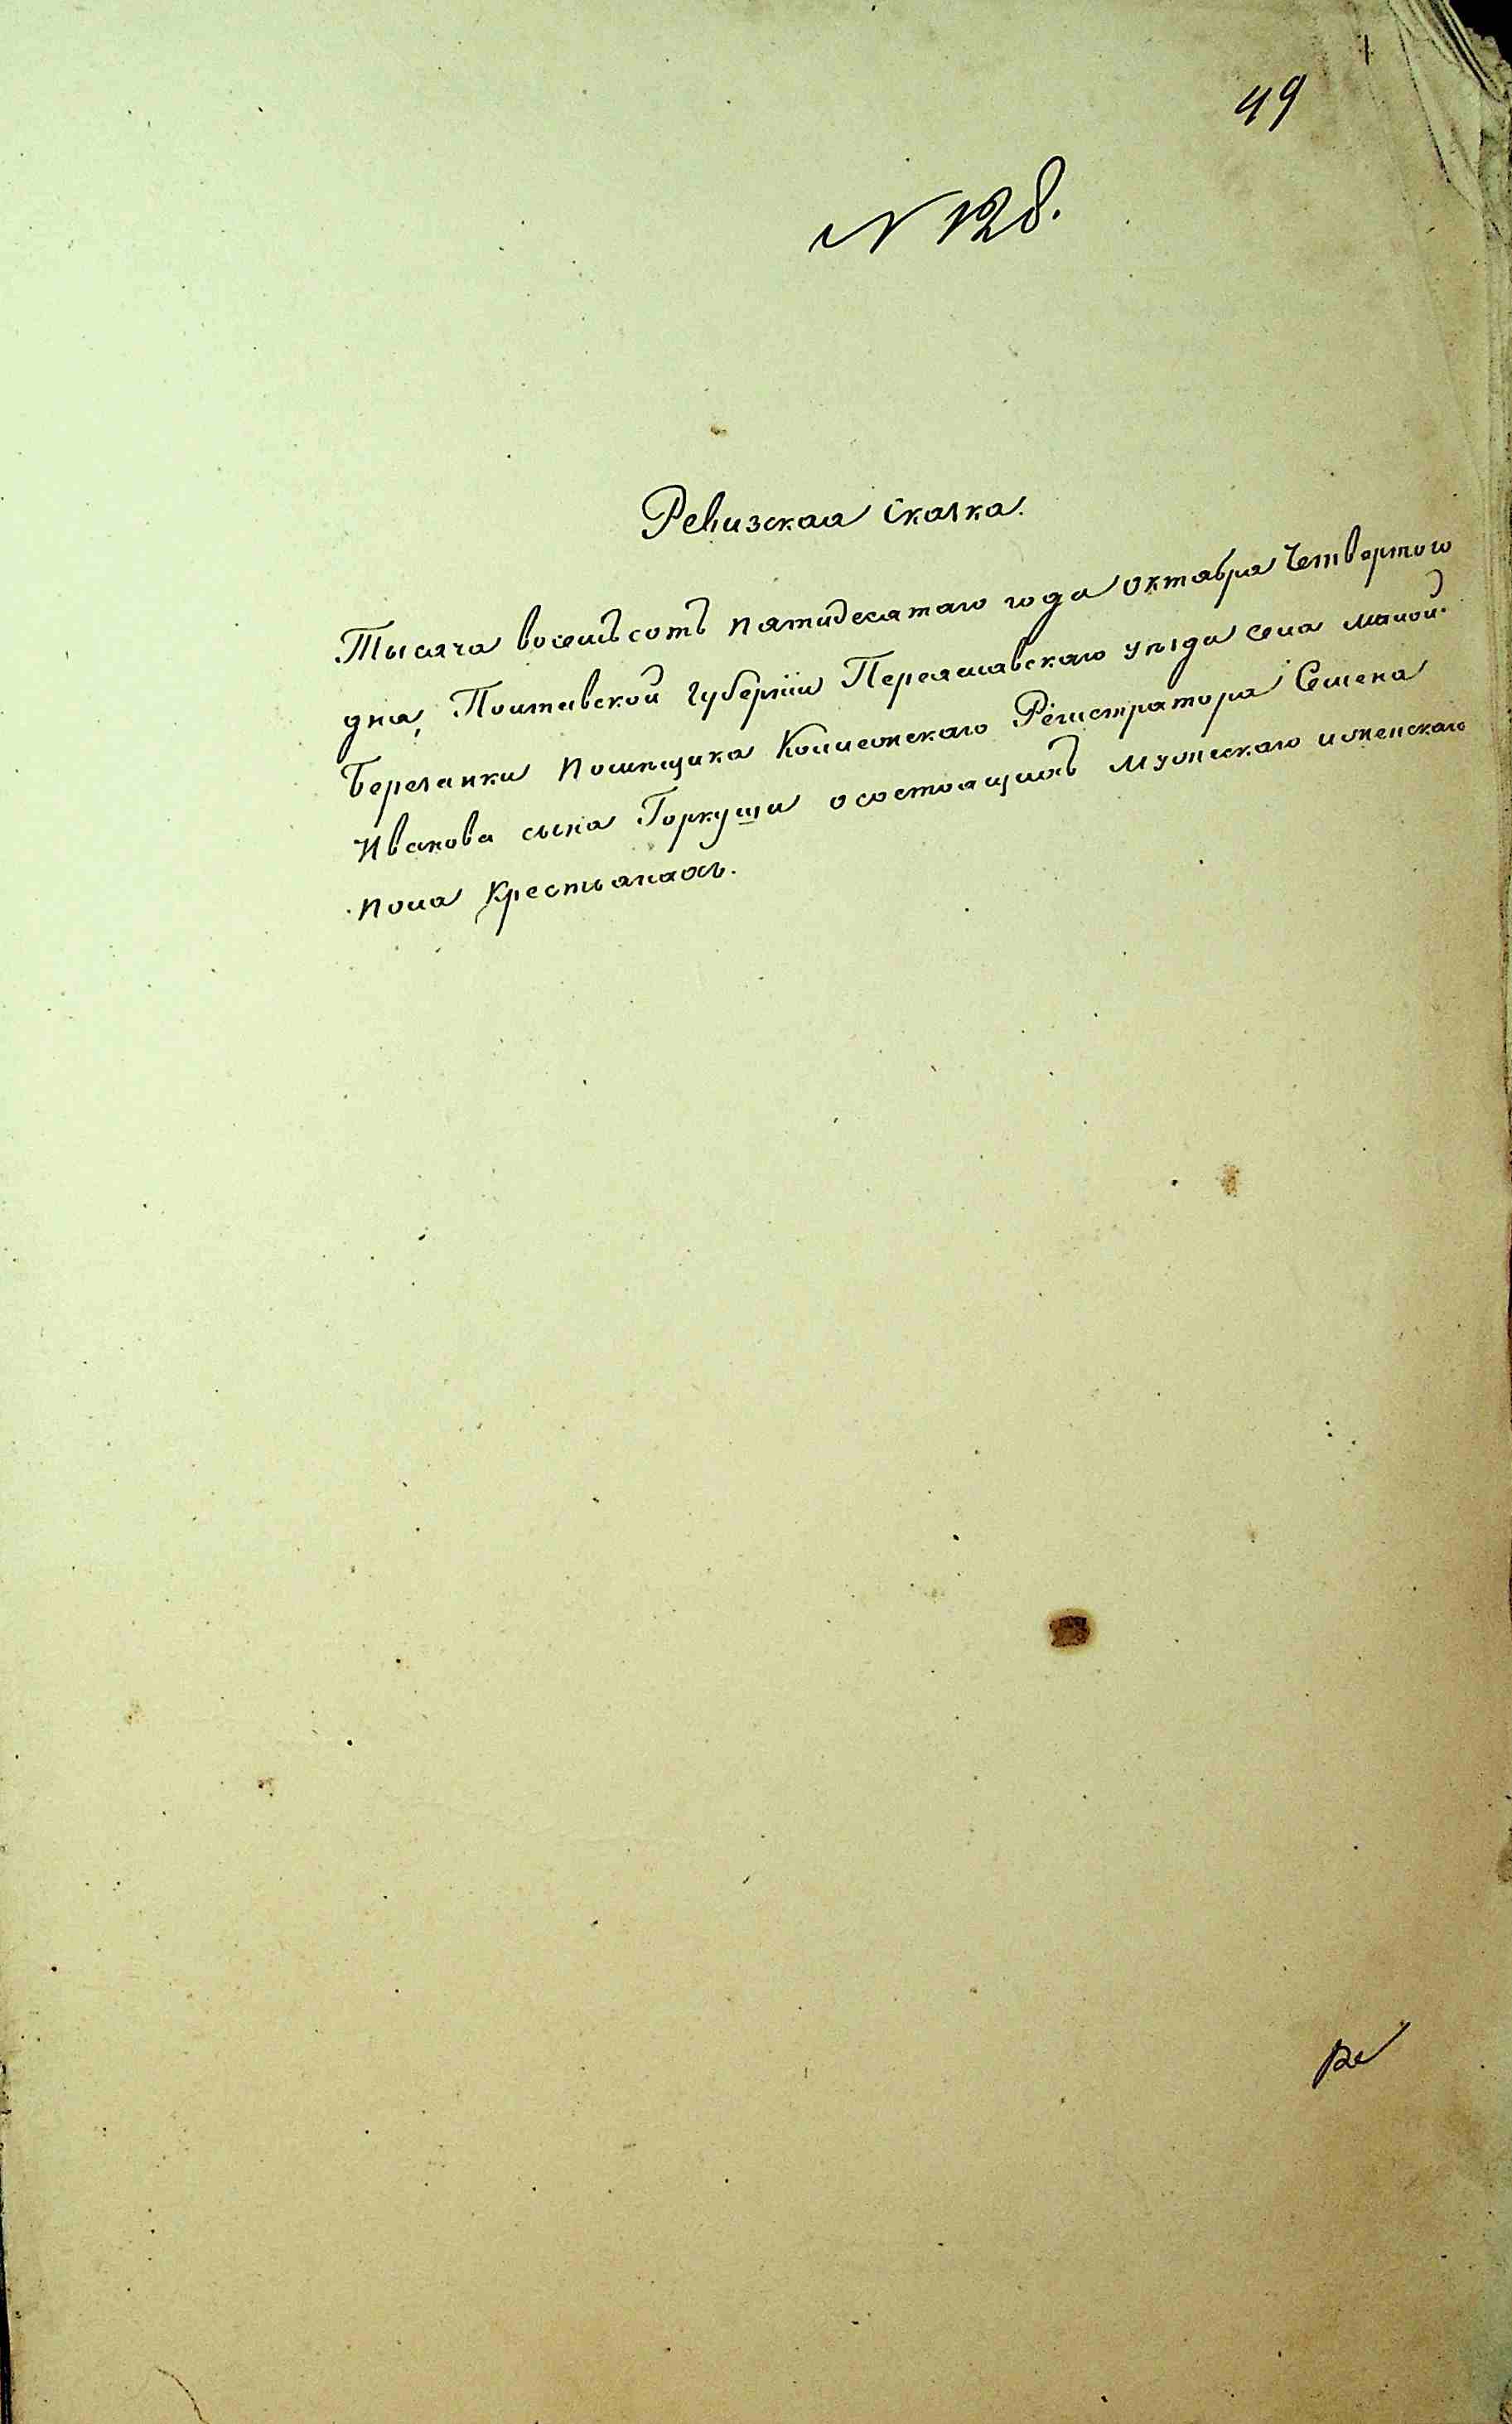 49
N 128.
Ревизская Сказка.
Тысяча восемьсотъ пятидесятаго года Октября Четвертого
дня, Полтавской Губерніи Переяславскаго уѣзда села малой
Березанки Помѣщика Коллежскаго Регистратора Семена
Иванова сына Горкуши о состоящихъ мужескаго и женскаго
пола Крестьянахъ.